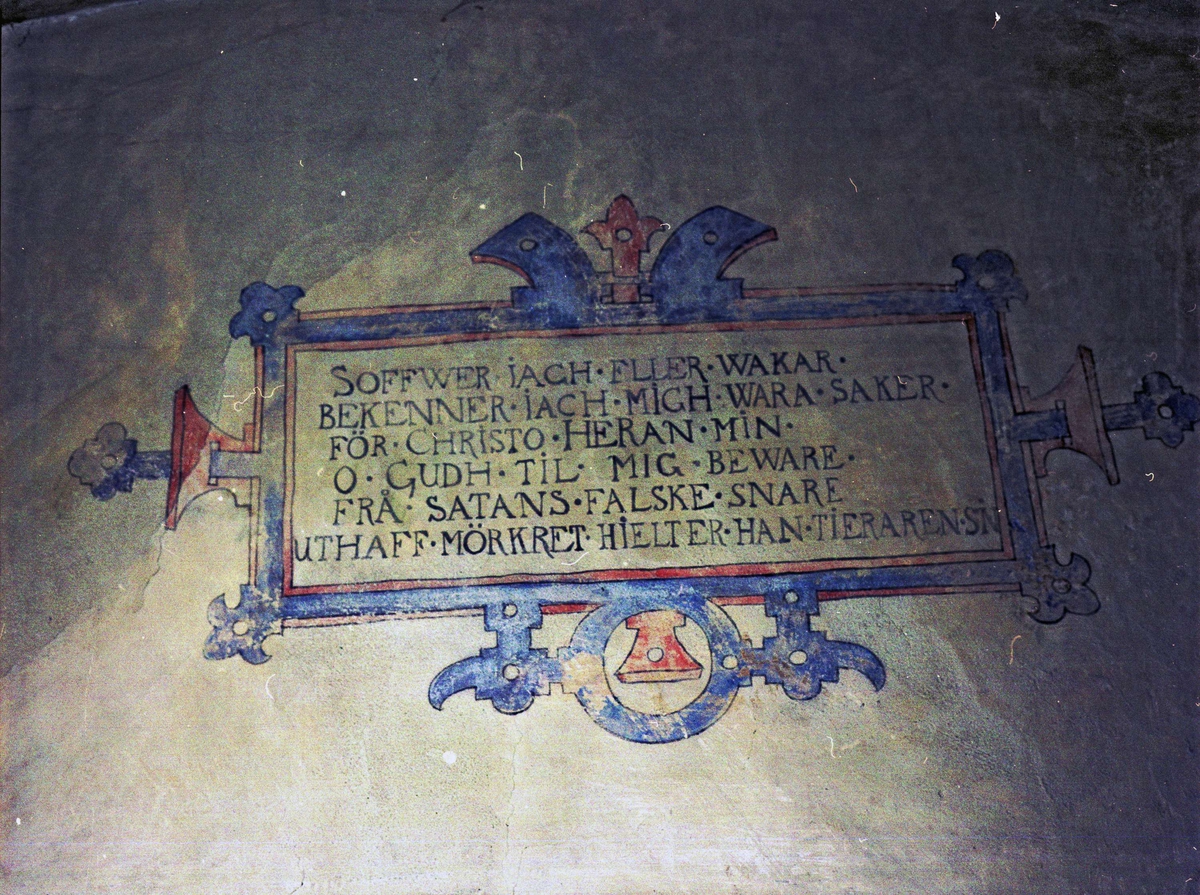 SOFFWER · IACH · FLLER · WAKAR ·
BEKENNER · IACH · MIGH · WARA · SAKER ·
FÖR · CHRISTO · HERAN · MIN ·
O · GUDH · TIL · MIG · BEWARE ·
FRÅ · SATANS · FALSKE · SNARE
UTHAFF · MÖRKRET · HIELTER · HAN · TIERAREN · SIN